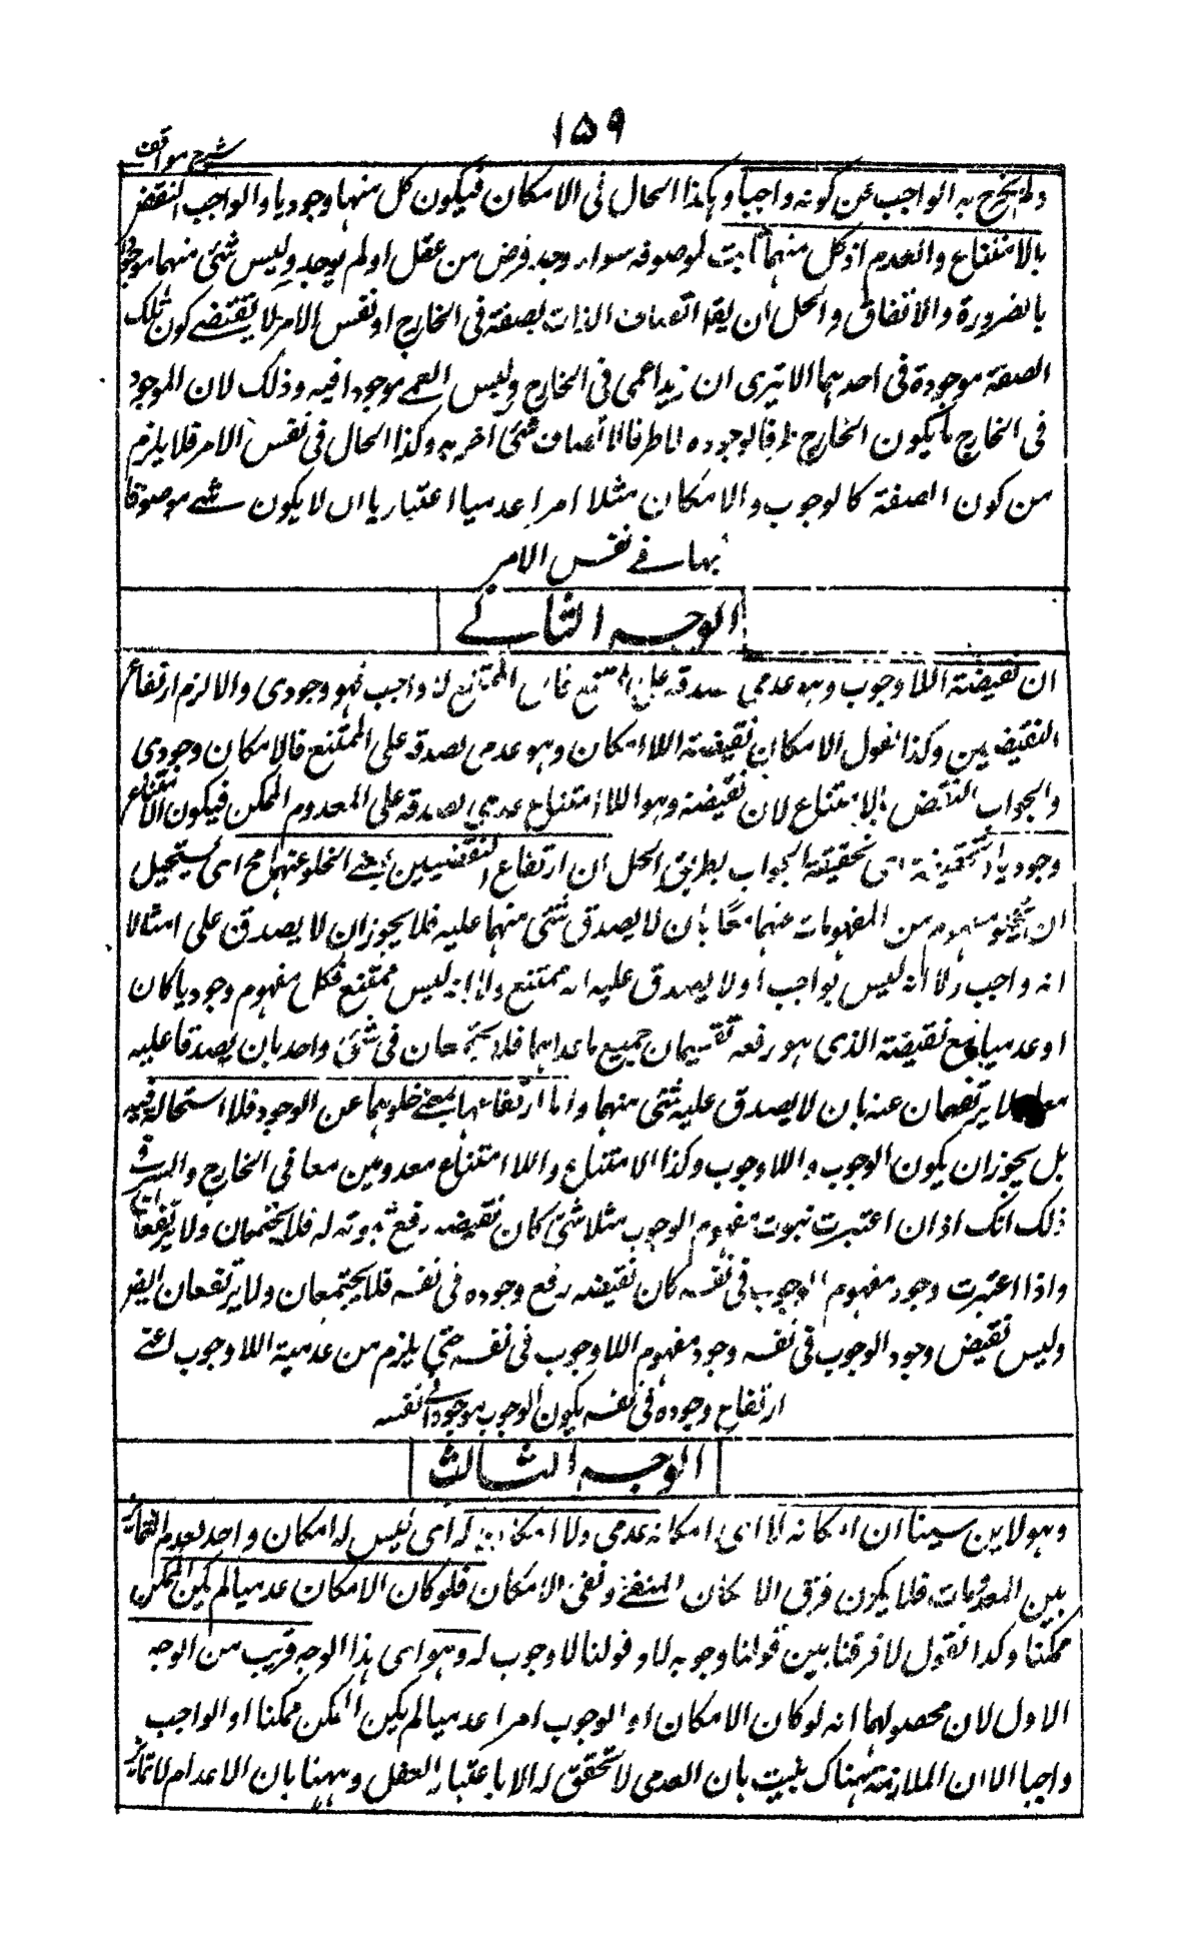 ١٥٩
شرح مواقف
ولم يخرج به الواجب عن كونه واجبا وهكذا الحال فى الامكان فيكون كل منهما وجوديا والواجب النقض
بالامتناع والعدم اذ كل منهما ثابت لموصوفه سواء وجد فرض من عقل او لم يوجد وليس شئ منهما موجودا
بالضرورة والاتفاق والحل ان يقا اتصاف الذات بصفة فى الخارج او نفس الامر لا يقتضے كون تلك
الصفة موجودة فى احدهما الا ترى ان زيدا اعمى فى الخارج وليس العمے موجودا فيه وذلك لان الموجود
فى الخارج ما يكون الخارج ظرفا لوجوده لا ظرفا لاتصاف شئ آخر به وكذا الحال فى نفس الامر فلا يلزم
من كون الصفة كالوجوب والامكان مثلا امرا عدميا اعتباريا ان لا يكون شے موصوفا
بها فے نفس الامر
الوجه الثانے
ان نقيضه اللا وجوب وهو عدمى صدقه على الممتنع فان الممتنع لا واجب فهو وجودى والا لزم ارتفاع
النقيضين وكذا نقول الامكان نقيضه اللا امكان وهو عدمى لصدقه على الممتنع فالامكان وجودى
والجواب النقض بالامتناع لان نقيضه وهو اللا امتناع عدمى لصدقه على المعدوم الممكن فيكون الامتناع
وجوديا تحقيقه اى تحقيق الجواب بطريق الحل ان ارتفاع النقيضين بمعنے الخلو عنهما مح اى يستحيل
ان يخلو مفهوم من المفهومات عنهما معًا بأن لا يصدق شئ منهما عليه فلا يجوز ان لا يصدق على امثالا
انه واجب ولا انه ليس بواجب او لا يصدق عليه انه ممتنع ولا انه ليس بممتنع فكل مفهوم وجوديا كان
او عدميا مع نقيضه الذى هو رفعه تقسيمان جميع ما عداهما فلا يجتمعان فى شئ واحد بان يصدقا عليه
معا ولا يرتفعان عنه بان لا يصدق عليه شئ منهما واما ارتفاعهما بمعنے خلوهما عن الوجود فلا استحالة فيه
بل يجوز ان يكون الوجوب واللا وجوب وكذا الامتناع واللا امتناع معدومين معا فى الخارج والسر فى
ذلك انك اذا ان اعتبرت ثبوت مفهوم الوجوب مثلا شئ كان نقيضه رفع ثبوته له فلا يجتمعان ولا يرتفعان
واذا اعتبرت وجود مفهوم الوجوب فى نفسه كان نقيضه رفع وجوده فى نفسه فلا يجتمعان ولا يرتفعان ايضا
وليس نقيض وجود الوجوب فى نفسه وجود مفهوم اللا وجوب فى نفسه حتى يلزم من عدمية اللا وجوب اعنے
ارتفاع وجوده فى نفسه يكون الوجوب موجودا فى نفسه
الوجه الثالث
وهو لابن سينا ان امكانه لا اى امكانه عدمى ولا امكان له اى ليس له امكان واحد لعدم التمايز
بين العدمات فلا يكون فرق الامكان المنفے ونفى الامكان فلو كان الامكان عدميا لم يكن الممكن
ممكنا وكذا نقول لا فرقنا بين قولنا وجوبه لا وقولنا لا وجوب له وهو اى هذا الوجه قريب من الوجه
الاول لان محصولهما انه لو كان الامكان او الوجوب امرا عدميا لم يكن الممكن ممكنا او الواجب
واجبا الا ان الملازمة هناك بنيت بان العدمى لا تحقق له الا باعتبار العقل وههنا بان الاعدام لا تمايز